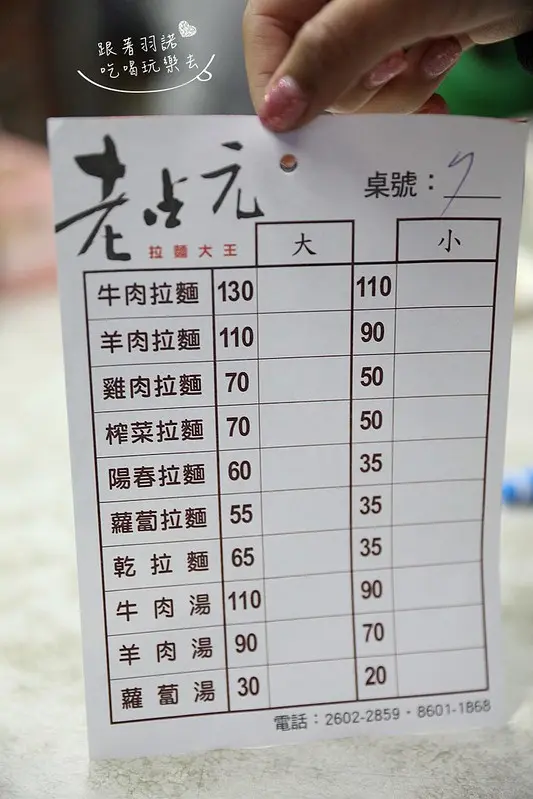 跟著羽諾
吃喝玩樂去
老占元
拉麵大王
桌號：7
大 小
牛肉拉麵 130 110
羊肉拉麵 110 90
雞肉拉麵 70 50
榨菜拉麵 70 50
陽春拉麵 60 35
蘿蔔拉麵 55 35
乾拉麵 65 35
牛肉湯 110 90
羊肉湯 90 70
蘿蔔湯 30 20
電話：2602-2859・8601-1868